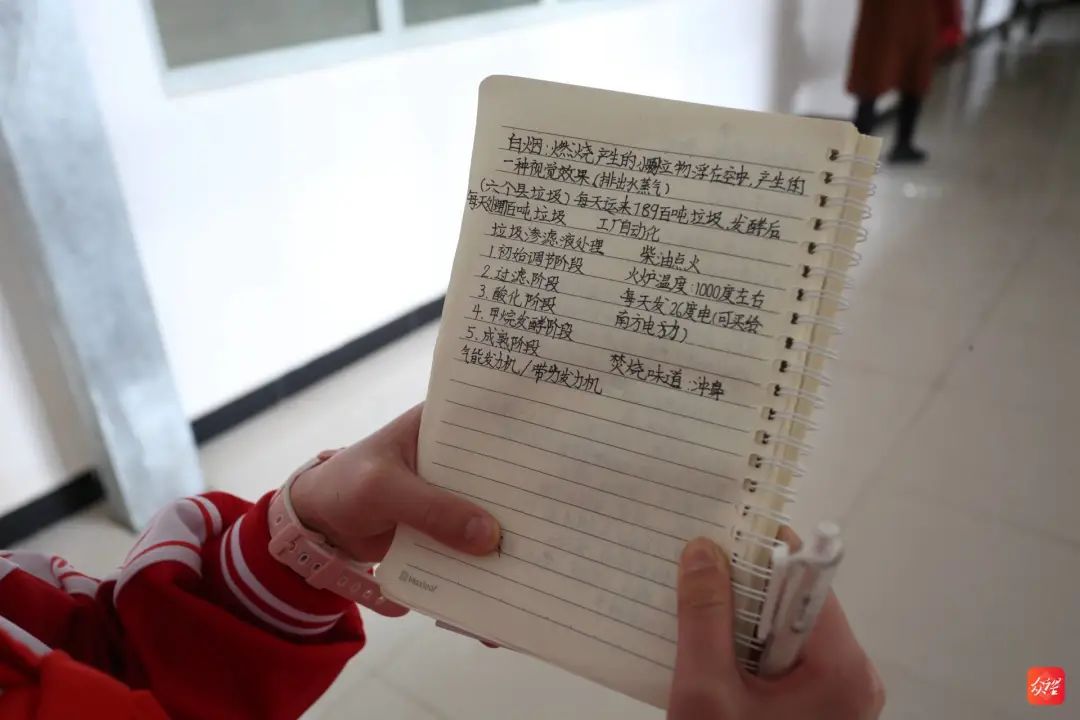 白烟:燃烧产生的小颗粒物浮在空中,产生的
一种视觉效果(排出水蒸气)
(六个县垃圾)每天运来189百吨垃圾,发酵后
每天 百吨垃圾 工厂自动化
垃圾渗滤液处理 柴油点火
1.初始调节阶段 火炉温度:1000度左右
2.过滤阶段 每天发26度电(可买给
3.酸化阶段 南方电力)
4.甲烷发酵阶段
5.成熟阶段 焚烧味道:冲鼻
气能发力机/带动发力机
Maxleaf
众望